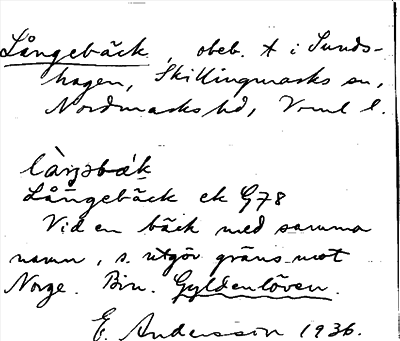 Långebäck, obeb. t i Sunds-
hagen, Skillingmarks sn,
Nordmarks hd, Vrml l.
làŋəbǽk
Långebäck ek G78
Vid en bäck med samma
namn, s. utgör gräns mot
Norge. Bin. Gyldenlöven.
E. Andersson 1936.